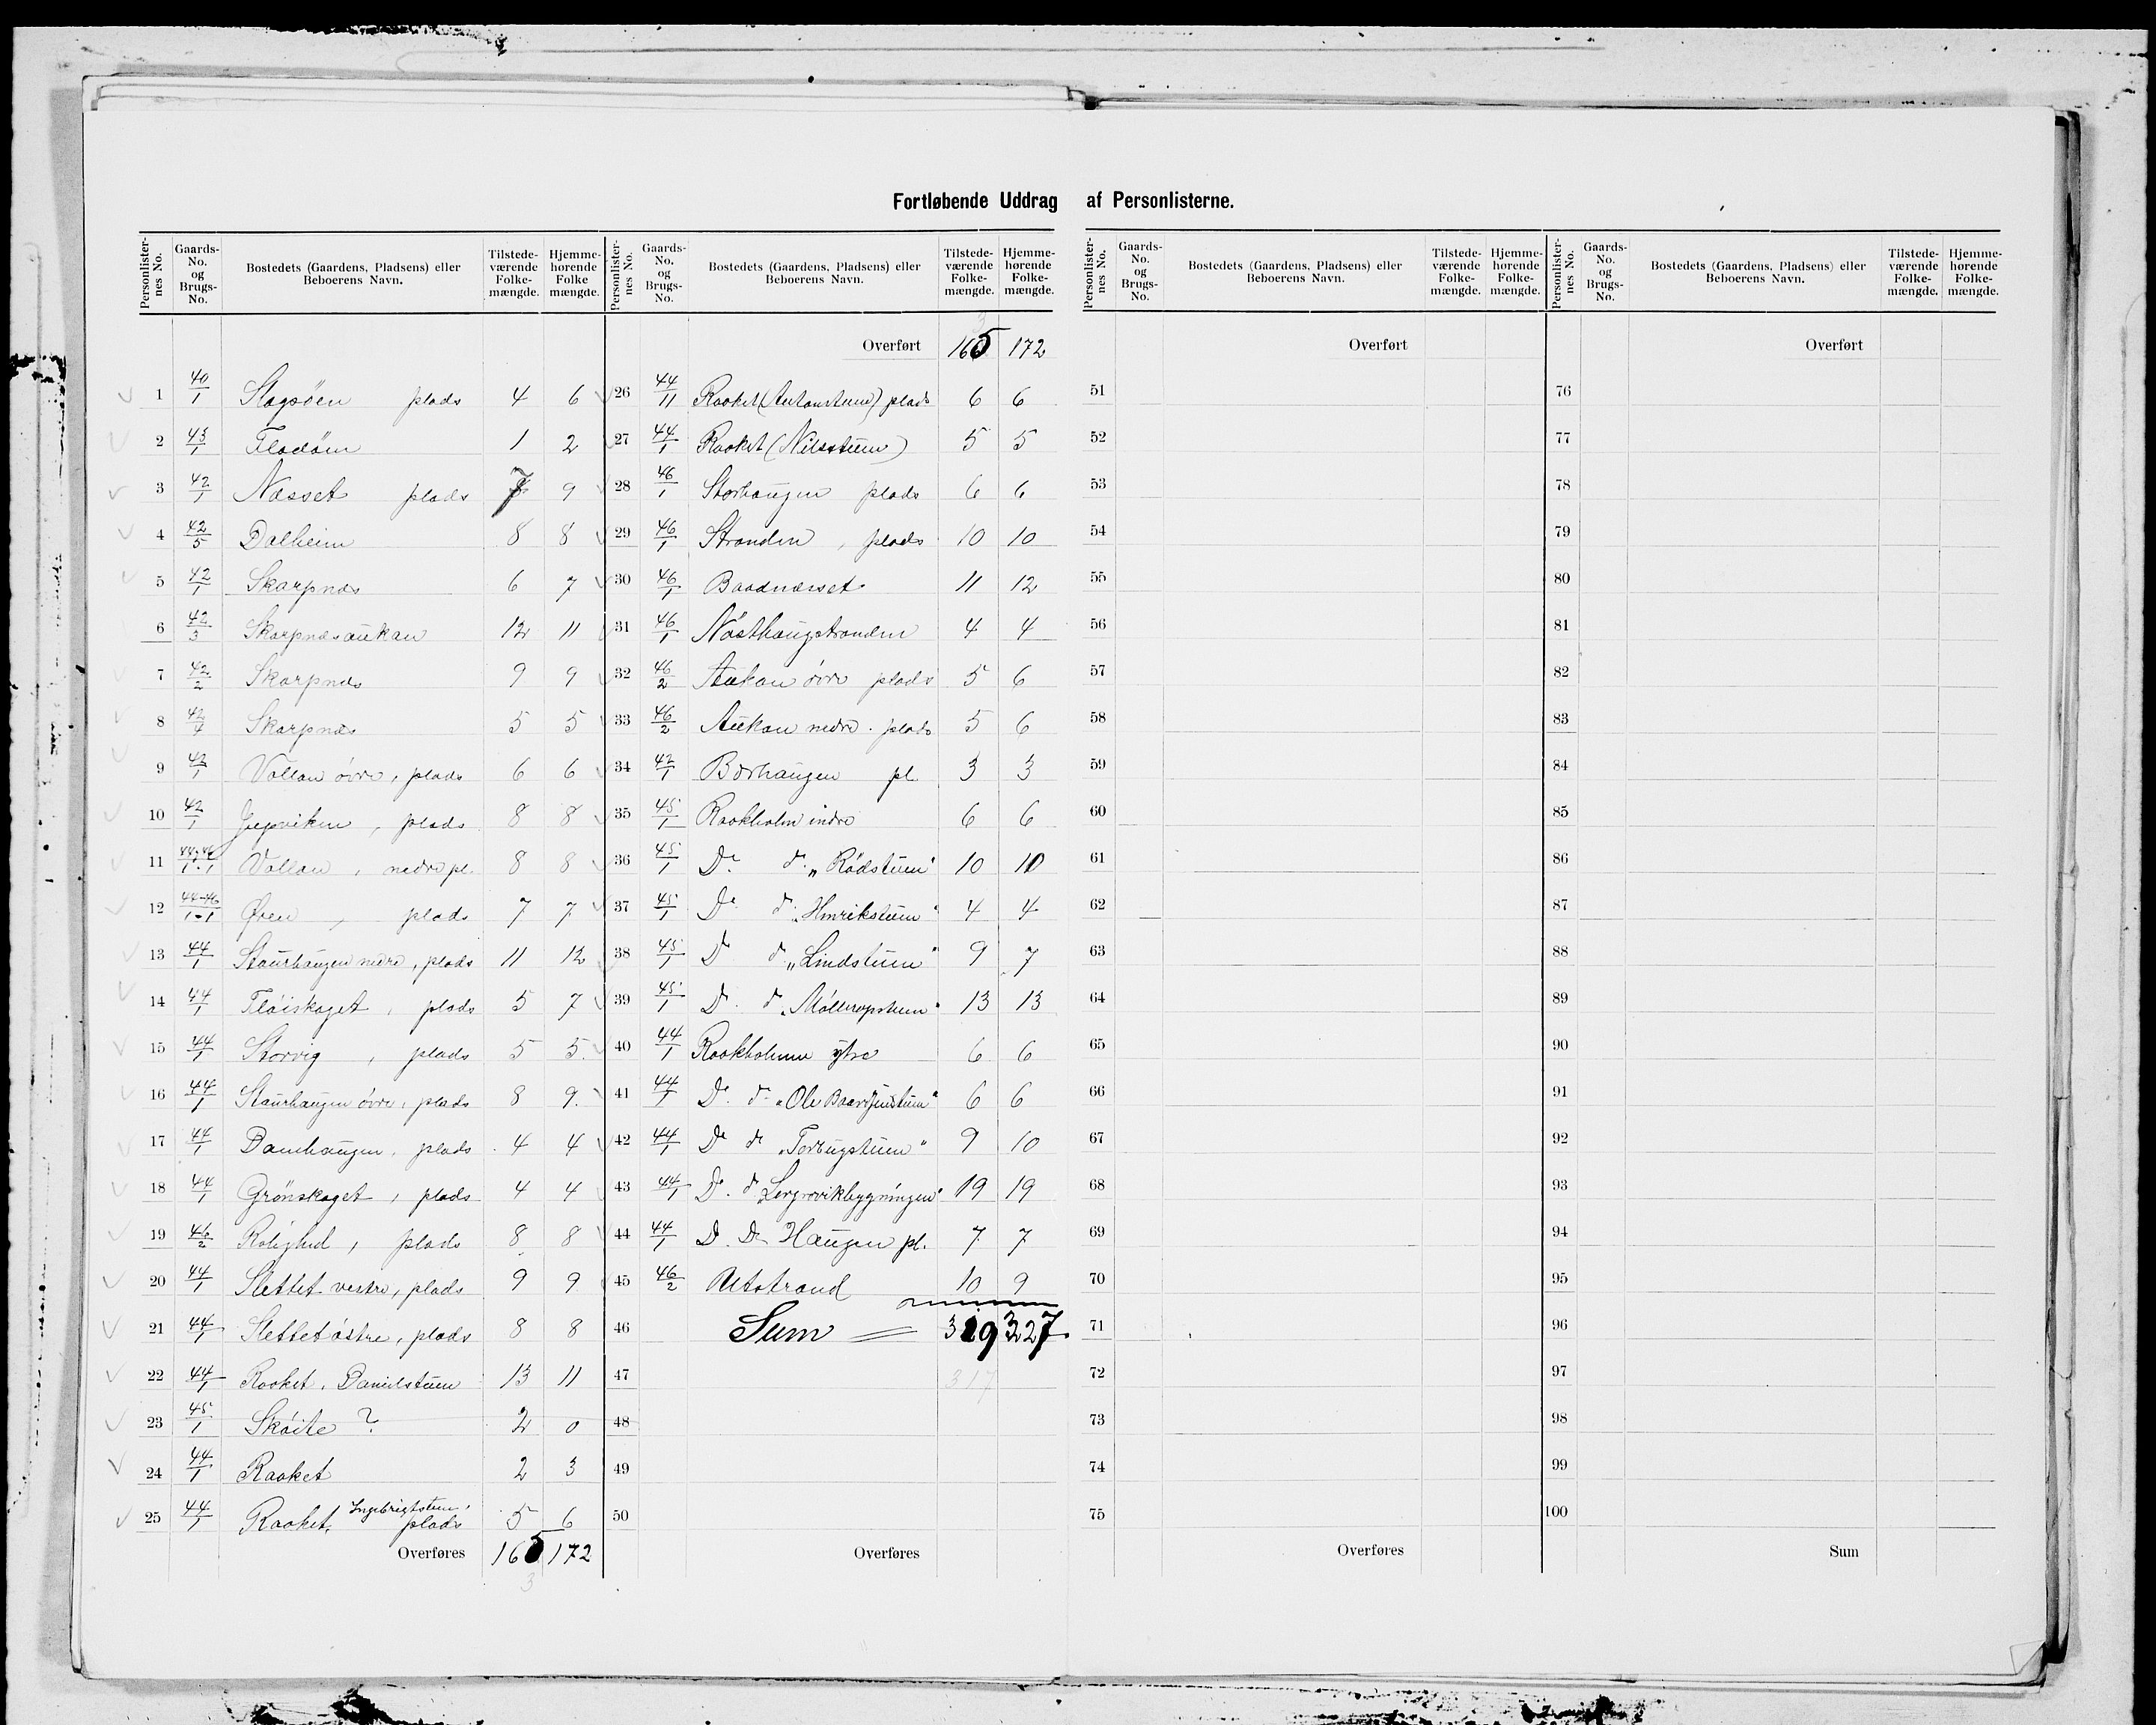 Fortløbende Uddrag af Personlisterne.
Personlister-nes No. Gaards-No. og Brugs-No. Bostedets (Gaardens, Pladsens) eller Beboerens Navn. Tilstede-værende Folke-mængde. Hjemme-hørende Folke mængde.
1 40/1 Slagsöen plads 4 6
2 43/1 Flodöen 1 2
3 42/1 Næsset plads 7 9
4 42/5 Dalheim 8 8
5 42/1 Skarpnæs 6 7
6 42/3 Skarpnæsaukan 12 11
7 42/2 Skarpnæs 9 9
8 42/4 Skarpnæs 5 5
9 42/1 Vollan övre, plads 6 6
10 42/1 Jupviken, plads 8 8
11 44/1 · 46/1 Vollan, nedre pl. 8 8
12 44/1 - 46/1 Øren, plads 7 7
13 44/1 Staurhaugen nedre, plads 11 12
14 44/1 Flöiskaget, plads 5 7
15 44/1 Storvig, plads 5 5
16 44/1 Staurhaugen övre, plads 8 9
17 44/1 Damhaugen, plads 4 4
18 44/1 Grönskaget, plads 4 4
19 46/2 Rolighed, plads 8 8
20 44/1 Slettet vestre, plads 9 9
21 44/1 Slettet östre, plads 8 8
22 44/1 Rooket, Danielstuen 13 11
23 45/1 Sköite ? 2 0
24 44/1 Raaket 2 3
25 44/1 Raaket, Ingebrigtstuen, plads 5 6
Overføres 165 172
3
Personlister-nes No. Gaards-No. og Brugs-No. Bostedets (Gaardens, Pladsens) eller Beboerens Navn. Tilstede-værende Folke-mængde. Hjemme-hørende Folke-mængde.
3
Overført 165 172
26 44/11 Raaket (Antonstuen) plads 6 6
27 44/1 Raaket (Nilsstuen) 5 5
28 46/1 Storhaugen plads 6 6
29 46/1 Stranden, plads 10 10
30 46/1 Baadnæsset 11 12
31 46/1 Nösthaugstranden 4 4
32 46/2 Aukan övre plads 5 6
33 46/2 Aukan nedre. plads 5 6
34 42/1 Børhaugen pl. 3 3
35 45/1 Raakholm indre 6 6
36 45/1 Do do „Rödstuen" 10 10
37 45/1 Do do „Henrikstuen" 4 4
38 45/1 Do do „Lindstuen" 9 7
39 45/1 Do do „Mölleropstuen" 13 13
40 44/1 Raakholmen ytre 6 6
41 44/1 Do do 6 6
42 44/1 Do do 9 10
43 44/1 Do do 19 19
44 44/1 Do Do Haugen pl. 7 7
45 46/2 Utstrand 10 9
46 Sum = 319 327
47 317
48
49
50
Overføres
Personlister-nes No. Gaards-No. og Brugs-No. Bostedets (Gaardens, Pladsens) eller Beboerens Navn. Tilstede-værende Folke-mængde. Hjemme-hørende Folke-mængde.
Overført
51
52
53
54
55
56
57
58
59
60
61
62
63
64
65
66
67
68
69
70
71
72
73
74
75
Overføres
Personlister-nes No. Gaards-No. og Brugs-No. Bostedets (Gaardens, Pladsens) eller Beboerens Navn. Tilstede-værende Folke-mængde. Hjemme-hørende Folke-mængde.
Overført
76
77
78
79
80
81
82
83
84
85
86
87
88
89
90
91
92
93
94
95
96
97
98
99
100
Sum